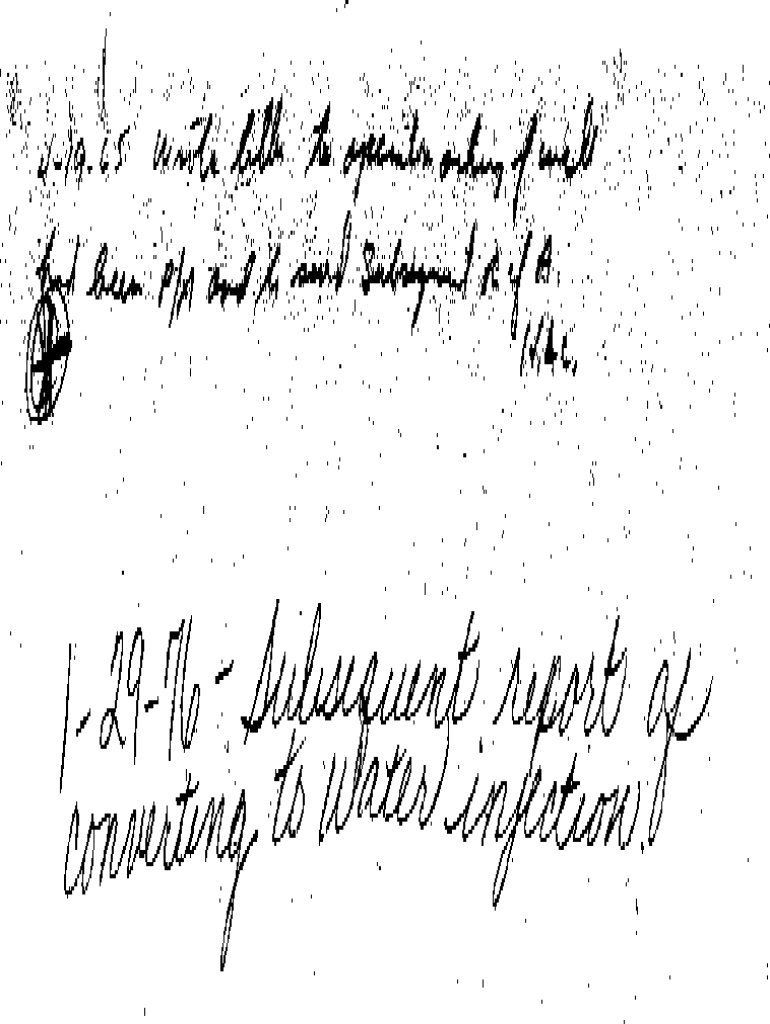 4-19-65 write to operator asking if well
been P/A and to send Subsequent R. of A.
1-29-76 - Subsequent report of
converting to water injection.